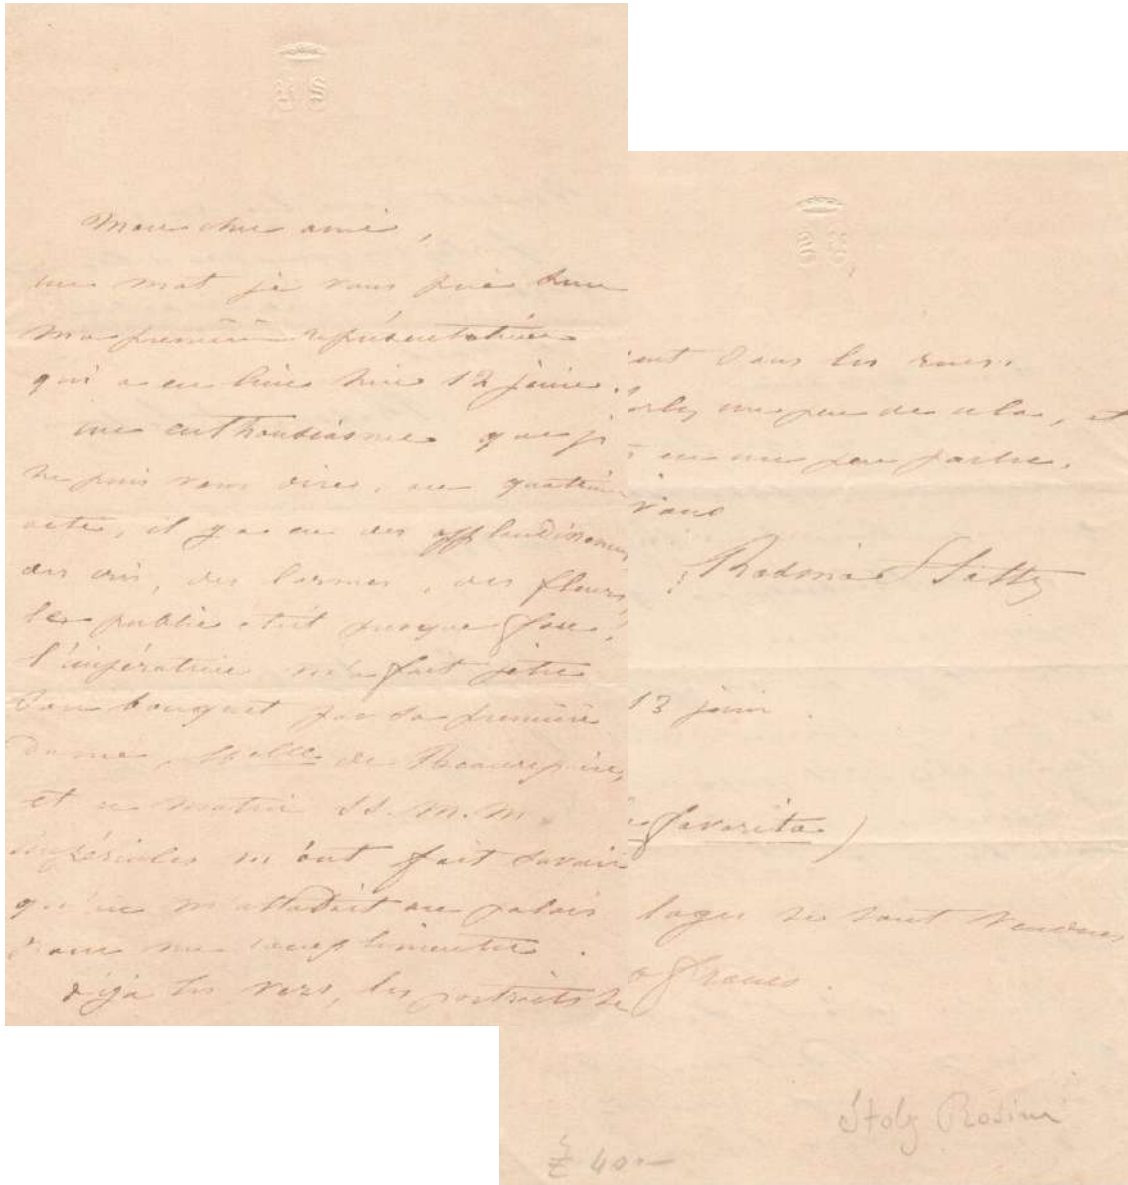 Mon cher ami,
un mot je vous prie sur
ma première représentation
qui a eu lieu hier 12 juin.
un enthousiasme que j
ne puis vous dire, au quatrième
acte, il y a eu des applaudissemens
des cris, des larmes, des fleurs,
le public était presque fou!
l'impératrice m'a fait jeter
son bouquet par sa première
dame, Melle de Beaurepaire,
et ce matin SS. M.M.
impériales m'ont fait savoir
qu'on m'attendait au palais
pour me complimenter.
déja les vers, les portraits se
ent dans les rues.
un peu de cela, et
en un peu parler.
vous
Rosina Stoltz
13 juin
favorita)
loges se sont vendues
francs.
Stolz Rosina
£ 40